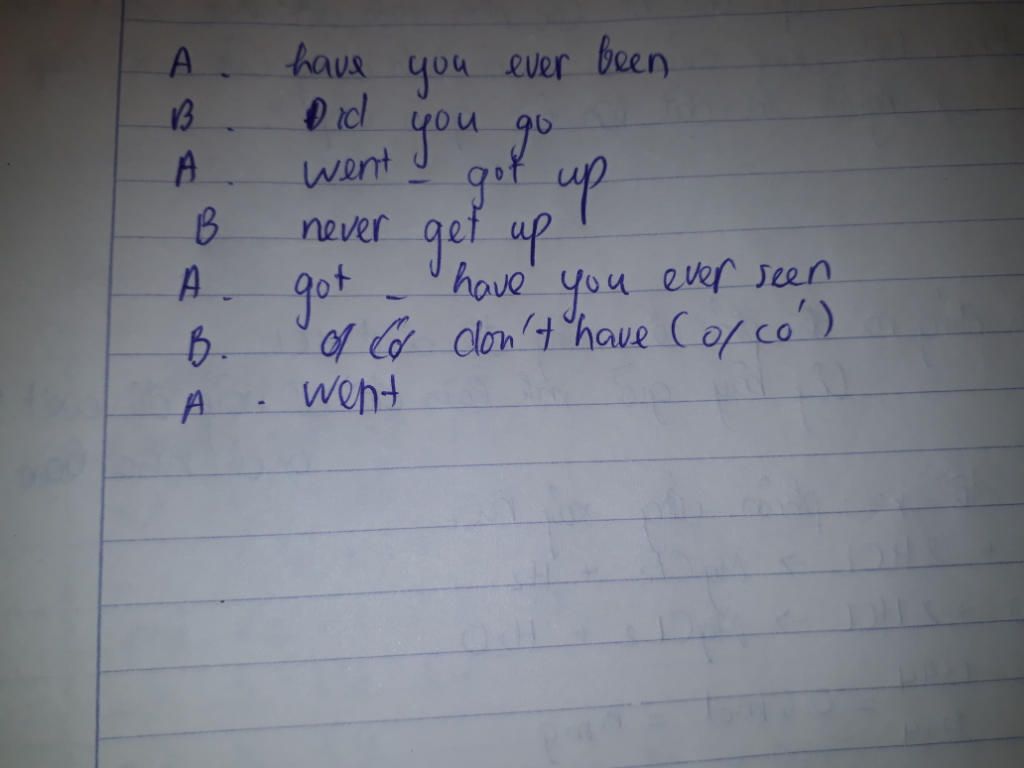 A. have you ever been
B. Did you go
A. went - got up
B never get up
A. got - have you ever seen
B. don't have (o/ có)
A. went